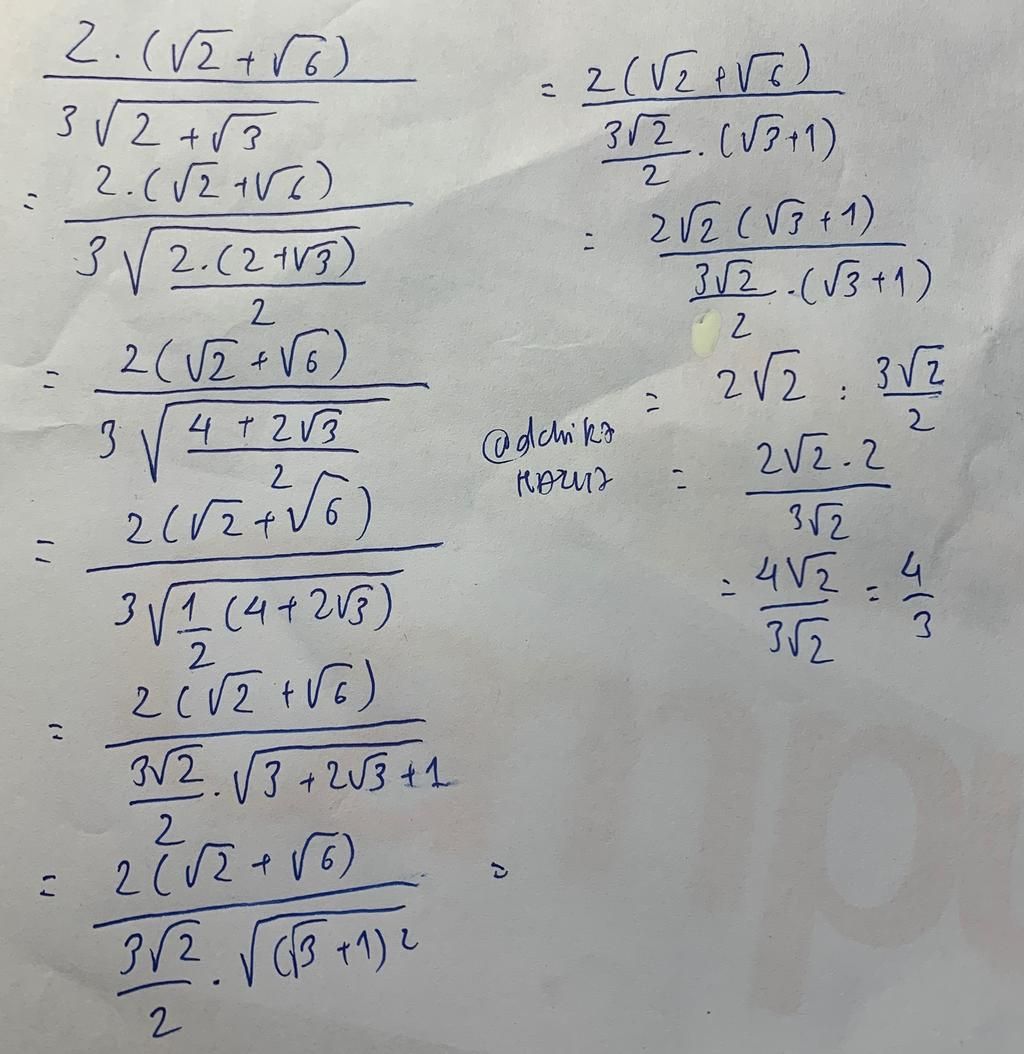 2.(√2+√6) / 3√(2+√3)
= 2.(√2+√6) / 3√(2.(2+√3)/2)
= 2(√2+√6) / 3√((4+2√3)/2)
= 2(√2+√6) / 3√(1/2 (4+2√3))
= 2(√2+√6) / (3√2/2 . √(3+2√3+1))
= 2(√2+√6) / (3√2/2 . √((√3+1)²)) =
= 2(√2+√6) / (3√2/2 . (√3+1))
= 2√2(√3+1) / (3√2/2 . (√3+1))
= 2√2 : 3√2/2
= 2√2.2 / 3√2
= 4√2/3√2 = 4/3